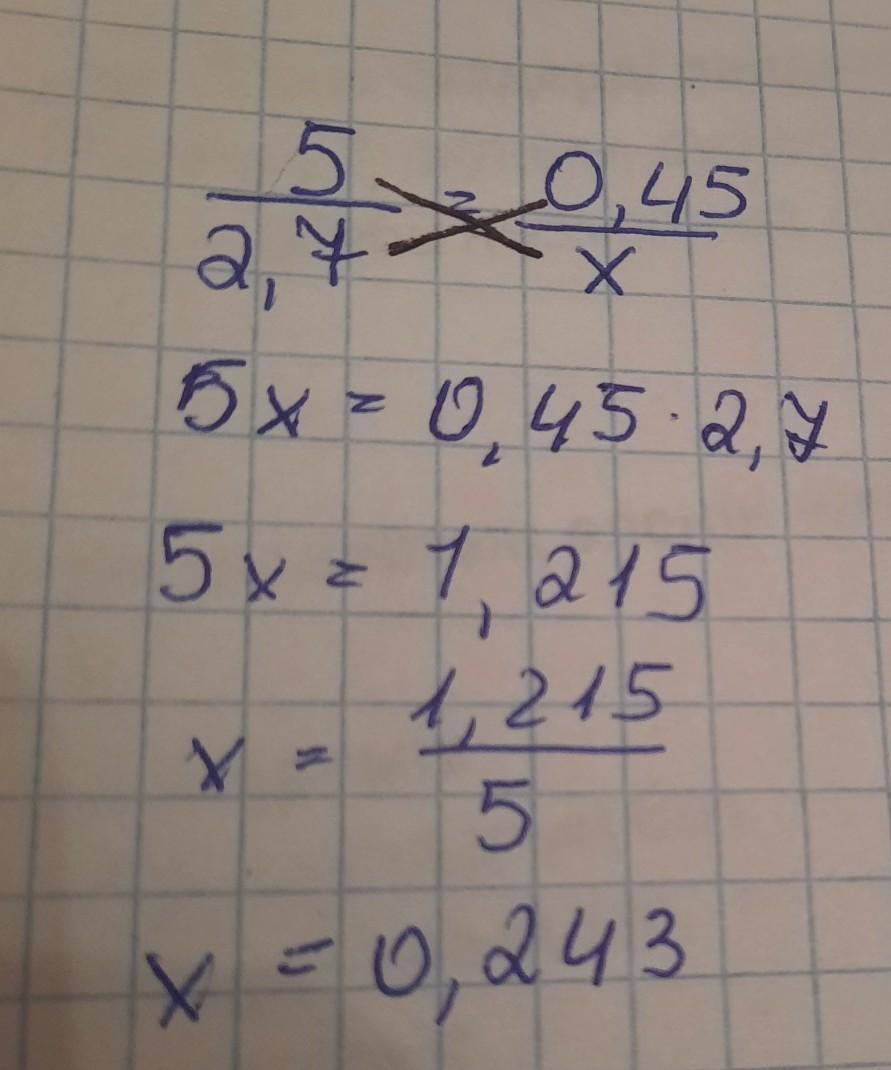 5/2,7 = 0,45/x
5x = 0,45 · 2,7
5x = 1,215
x = 1,215/5
x = 0,243